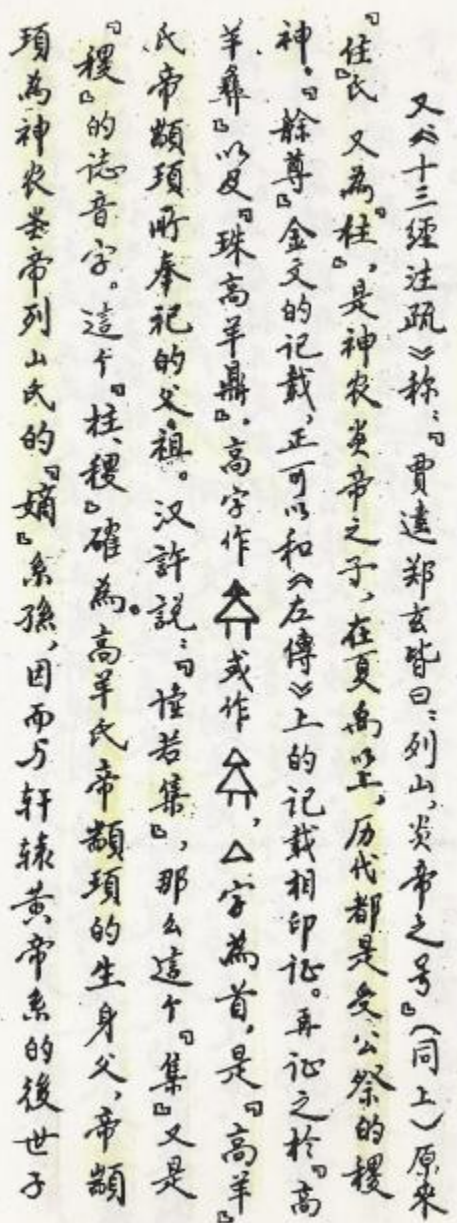 又《十三經注疏》称：『賈逵郑玄皆曰：列山，炎帝之号』（同上）原来
『住』氏又為『柱』，是神农炎帝之子，在夏禹以上，历代都是受公祭的稷
神。『艅尊』金文的记载，正可以和《左傳》上的记载相印证。再证之於『高
羊彝』以及『珠高羊鼎』，高字作 或作 ，△字為首，是『高羊』
氏帝颛頊所奉祀的父祖。汉許説：『惟若集』，那么這个『集』又是
『稷』的誌音字。這个『柱、稷』確為。高羊氏帝颛頊的生身父，帝颛
頊為神农炎帝列山氏的『嫡』系孫，因而与轩辕黄帝系的後世子